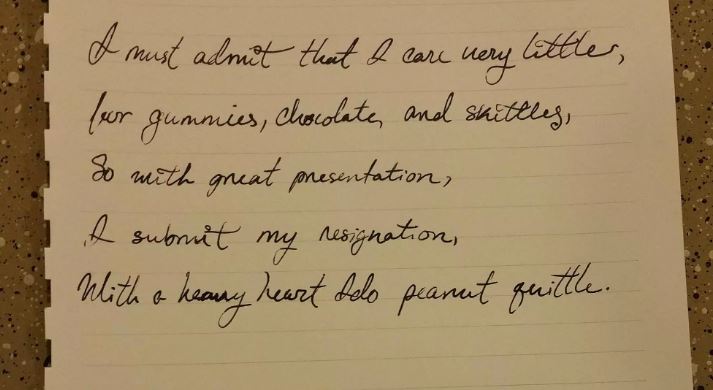 I must admit that I care very little,
for gummies, chocolate, and skittles,
So with great presentation,
I submit my resignation,
With a heavy heart I do peanut quittle.